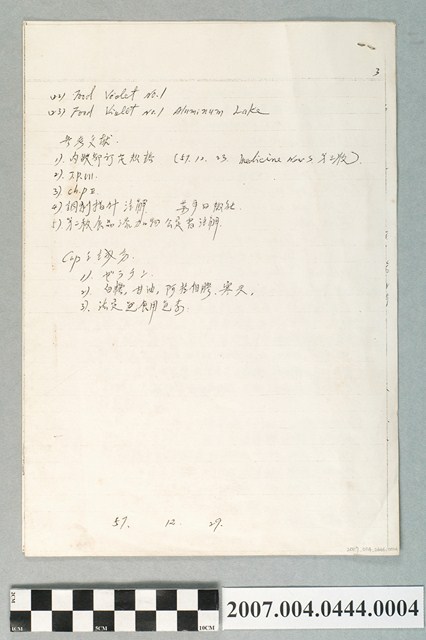 3
22) Food Violet No.1
23) Food Violet No.1 Aluminum Lake
参考文献
1). 內政部訂定規格 (57. 12. 23. Medicine News 第2版).
2). J.P.VII.
3) Ch.P II.
4) 調剤指針 注解
5) 第二版食品添加物公定書注解.
Cap 主成分.
1). ゼラチン.
2). 白糖, 甘油, 阿拉伯膠, 寒天,
3). 法定 食用色素.
57. 12. 27.
2007.004.0444.0004
2CM
1CM
5CM
10CM
2007.004.0444.0004